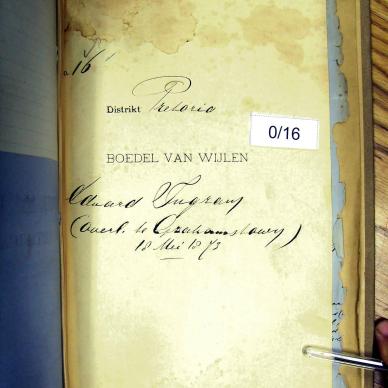 16
Distrikt Pretoria
0/16
BOEDEL VAN WIJLEN
Edward Ingram
(overl. te Grahamstown)
18 Mei 1873